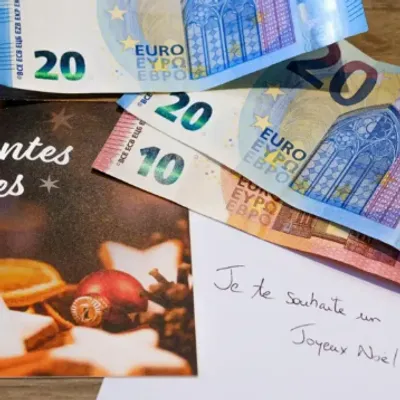 20 EURO
ΕΥΡΩ
ЕВРО
20
20 EURO
ΕΥΡΩ
ЕВРО
10 EURO
ΕΥΡΩ
ЕВРО
ntes
es
Je te souhaite un
Joyeux Noël